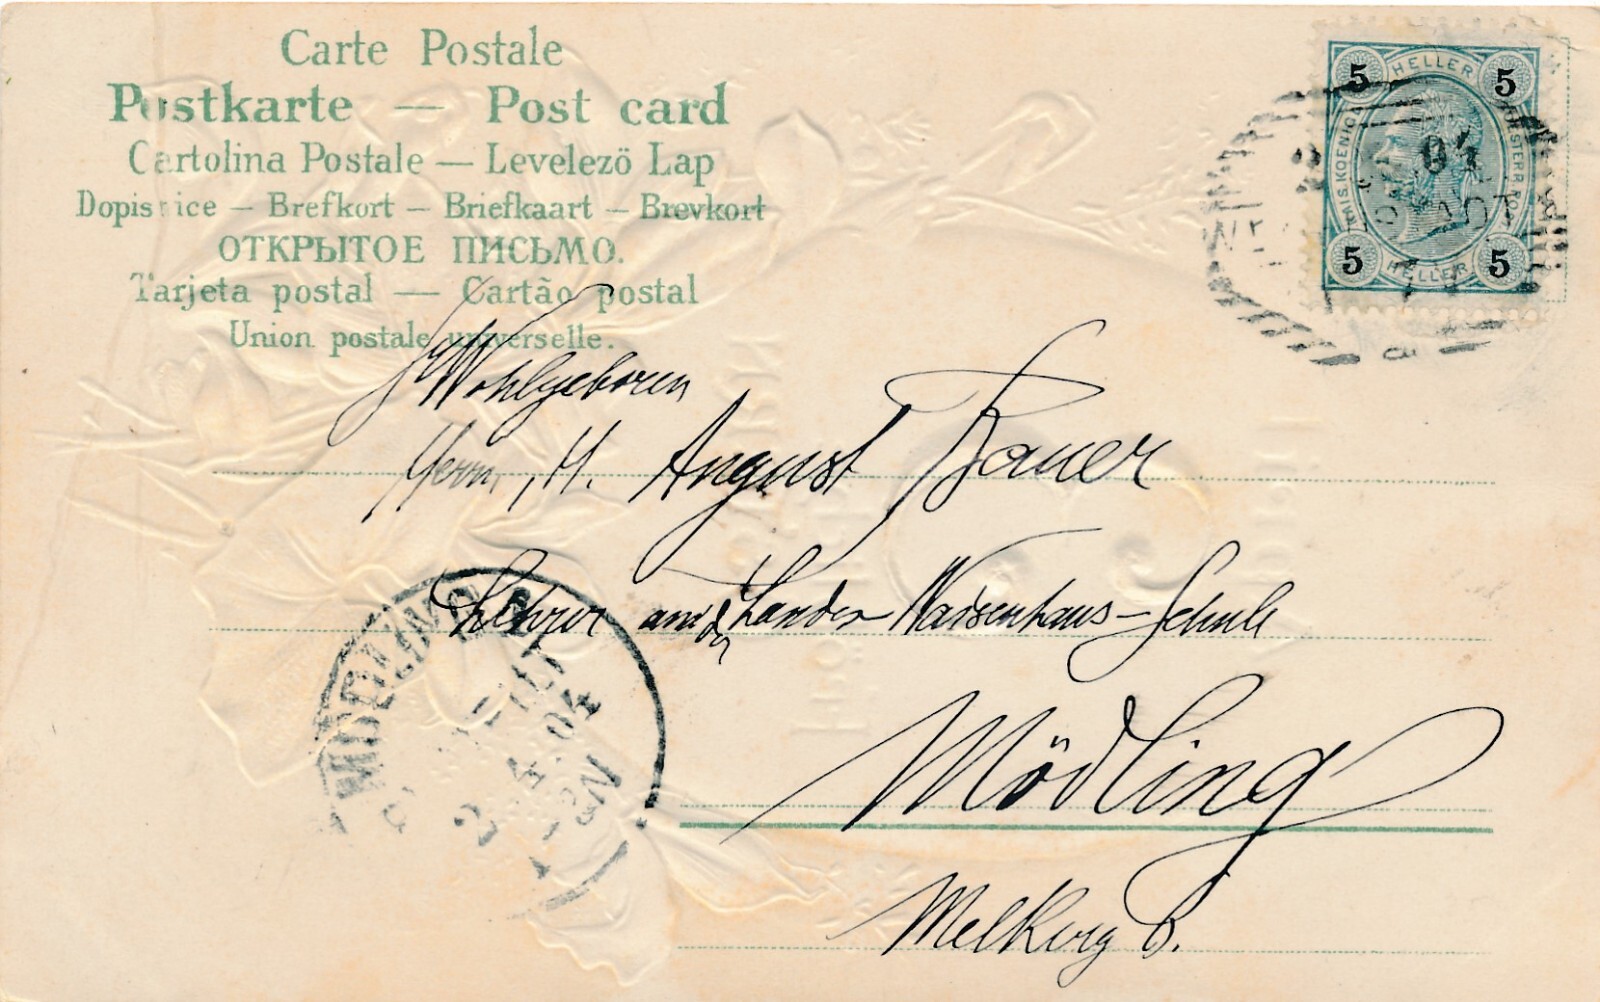 Carte Postale
Postkarte — Post card
Cartolina Postale — Levelező Lap
Dopisnice — Brefkort — Briefkaart — Brevkort
ОТКРЫТОЕ ПИСЬМО.
Tarjeta postal — Cartão postal
Union postale universelle.
5 HELLER 5
KAIS. KOENIGL. OESTERR. POST
5 HELLER 5
04
Wohlgeboren
Herrn, H. August Bauer
Lehrer an der Landes Waisenhaus-Schule
Mödling
MÖDLING
2 4 04